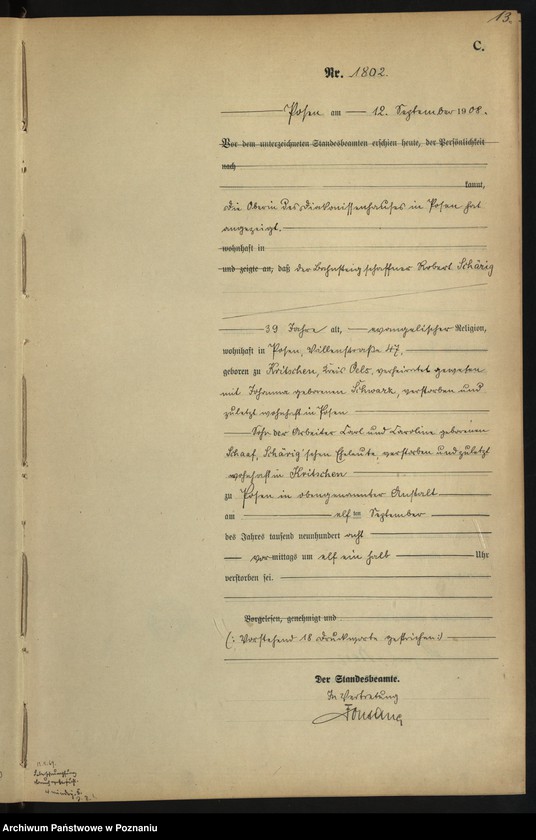 13.
C.
Nr. 1802.
Posen am 12. September 1908.
Vor dem unterzeichneten Standesbeamten erschien heute, der Persönlichkeit
nach
kannt,
die Oberin des Diakonissenhauses in Posen hat
angezeigt.
wohnhaft in
und zeigte an, daß der Bahnsteigschaffner Robert Schärig
39 Jahre alt, evangelischer Religion,
wohnhaft in Posen, Villenstraße 47,
geboren zu Kritschen, Kreis Oels, verheiratet gewesen
mit Johanna geborenen Schwarz, verstorben und
zuletzt wohnhaft in Posen
Sohn der Arbeiter Carl und Caroline geborenen
Schaaf, Schärig'schen Eheleute, verstorben und zuletzt
wohnhaft in Kritschen
zu Posen in obengenannter Anstalt
am elf ten September
des Jahres tausend neunhundert acht
vor mittags um elf ein halb Uhr
verstorben sei.
Vorgelesen, genehmigt und
(: Vorstehend 18 Druckworte gestrichen :)
Der Standesbeamte.
In Vertretung
Archiwum Państwowe w Poznaniu